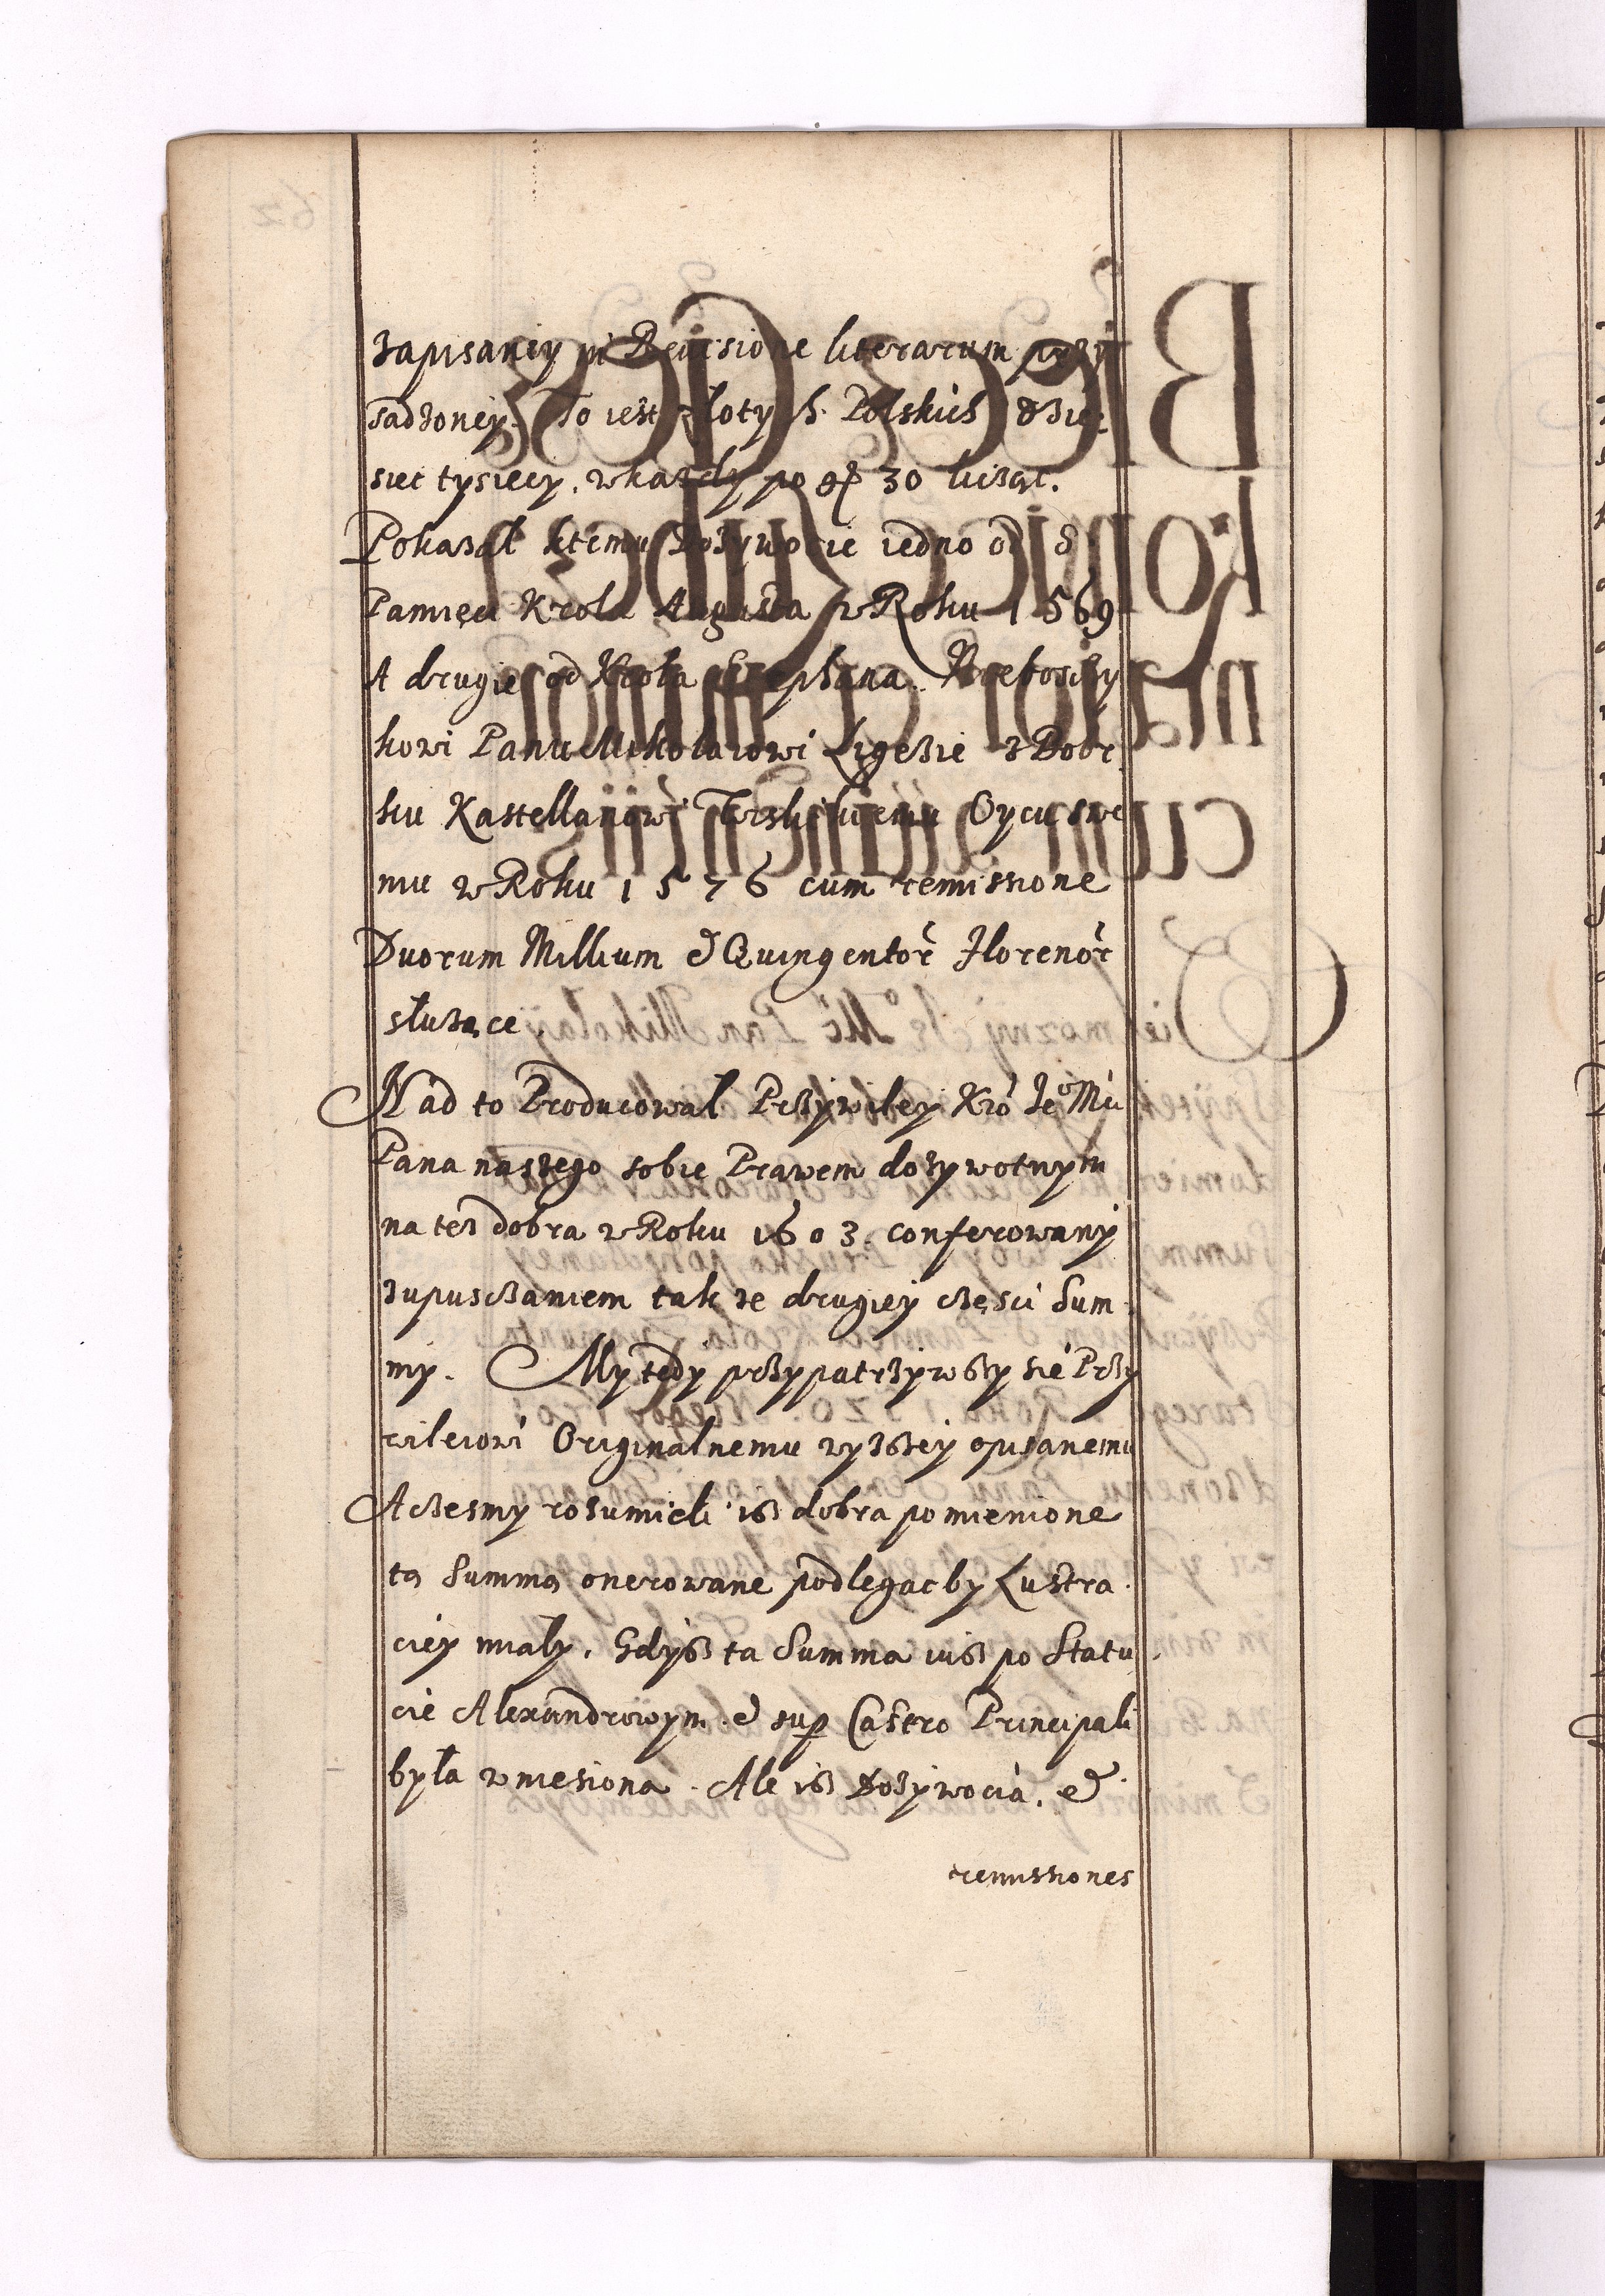 zapisaney in Revisione literarum przy
sadzoney. To iest złotych Polskich dzie:
siec tysiecy, w kazdy po gr 30 licząc.
Pokazał ktemu Dozywocie iedno od S
Pamięci Krola Augusta w Roku 1569
A drugie od Krola Stephana. Nieboszczy
kowi Panu Mikolaiowi Ligezie z Bobr
ku Kastellanowi Oycu swe
mu w Roku 1576 cum remissione
Duorum Millium & Quingentor Florenor
słuzące.
Nad to Producowal Przywiley Kró Je° Mci
Pana naszego sobie Prawem dozywotnym
na tez dobra w Roku 1603. conferowany
zupusczaniem tak ze drugiey częsci Sum
my. My tedy przypatrzywszy sie Przy
wileiowi Originalnemu wyzszey opisanemu
Aczesmy rozumieli isz dobra pomienione
tą Summą onerowane podlegac by Lustra
ciey miały. Gdysz ta Summa iusz po Statu
cie Alexandrowym & sup Castro Principali
była wniesiona. Ale isz Dozywocia, &
remissiones